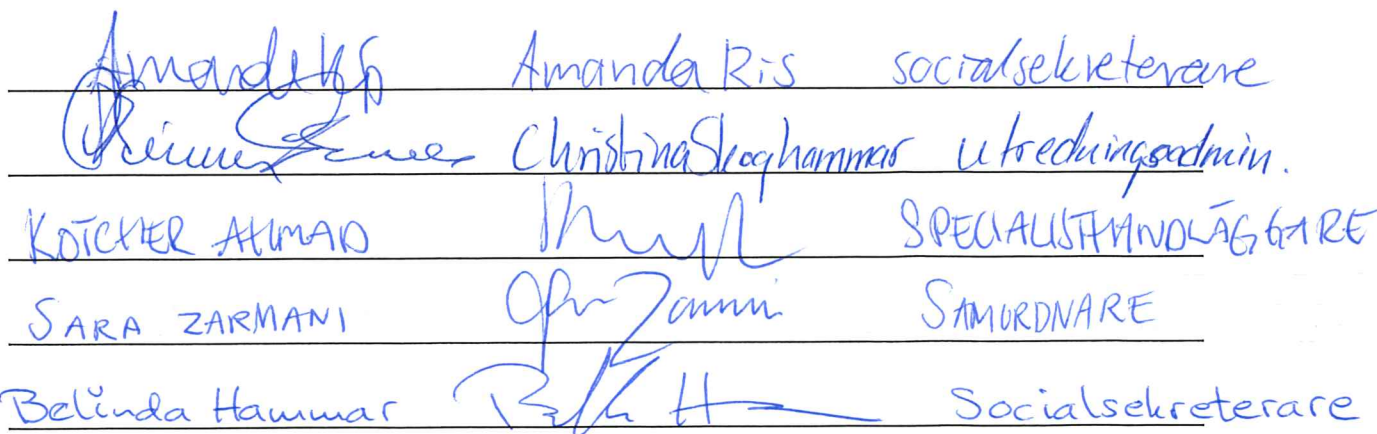 Amanda Ris Amanda Ris socialsekreterare
Christina Skoghammar utredningsadmin.
KOTCHER AHMAD SPECIALISTHANDLÄGGARE
SARA ZARMANI SAMORDNARE
Belinda Hammar Socialsekreterare